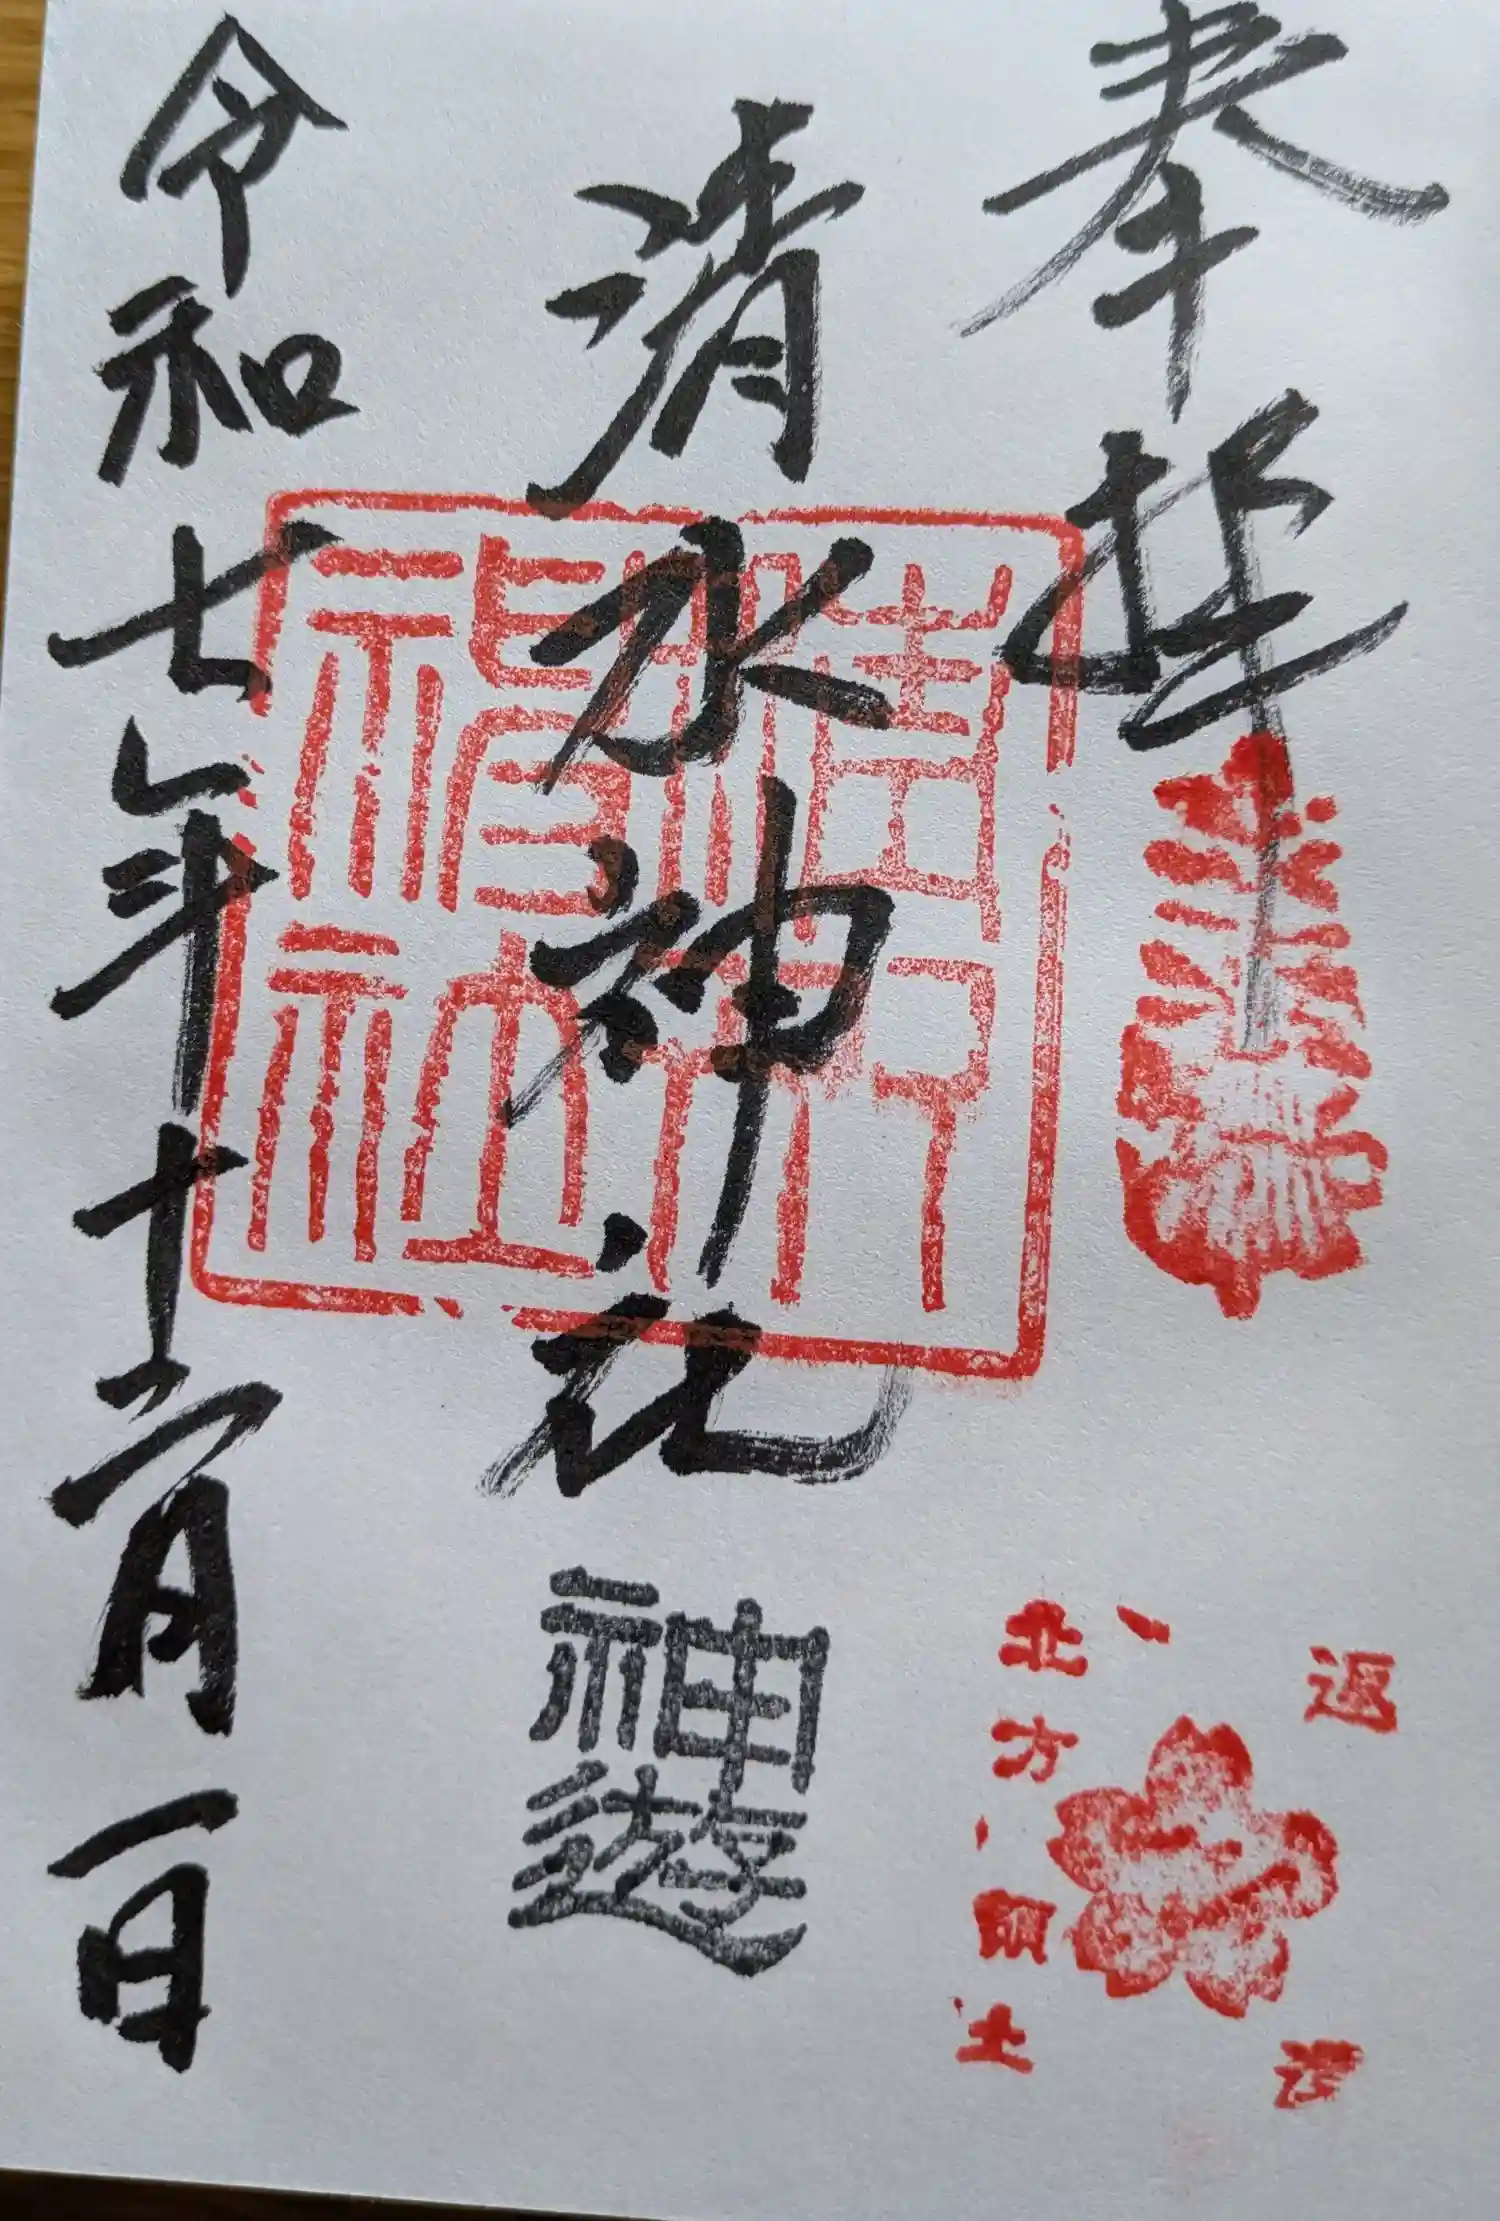 奉拝
清水神社
令和七年十二月一日
神遊
返還
北方領土